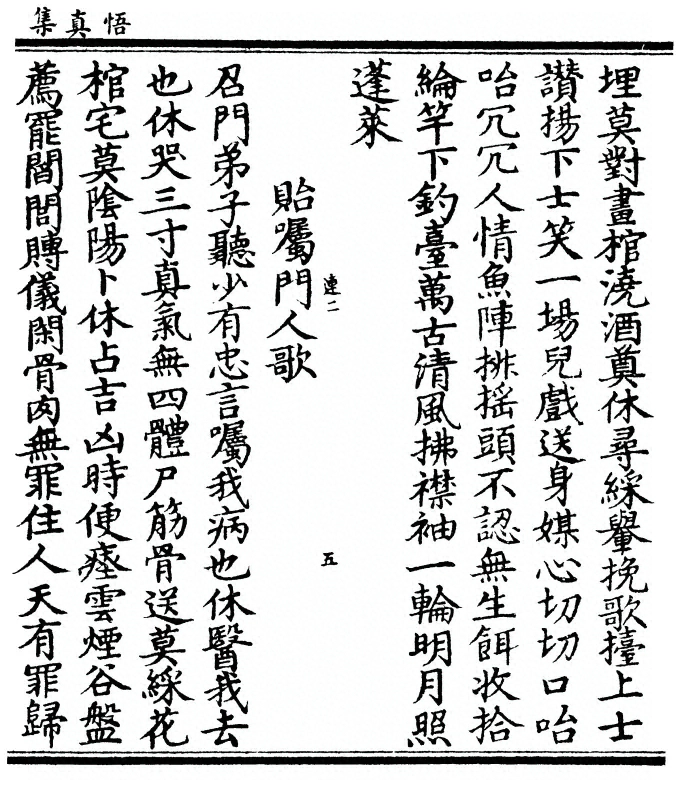 悟真集
埋莫對畫棺澆酒奠休尋綵轝挽歌擡上士
讚揚下士笑一場兒戲送身媒心切切口咍
咍冗冗人情魚陣排摇頭不認無生餌收拾
綸竿下釣臺萬古清風拂襟袖一輪明月照
蓬萊
貽囑門人歌
連二
五
召門弟子聽少有忠言囑我病也休醫我去
也休哭三寸真氣無四體尸筋骨送莫綵花
棺宅莫陰陽卜休占吉凶時便瘞雲煙谷盤
薦罷閻閭賻儀閑骨肉無罪住人天有罪歸